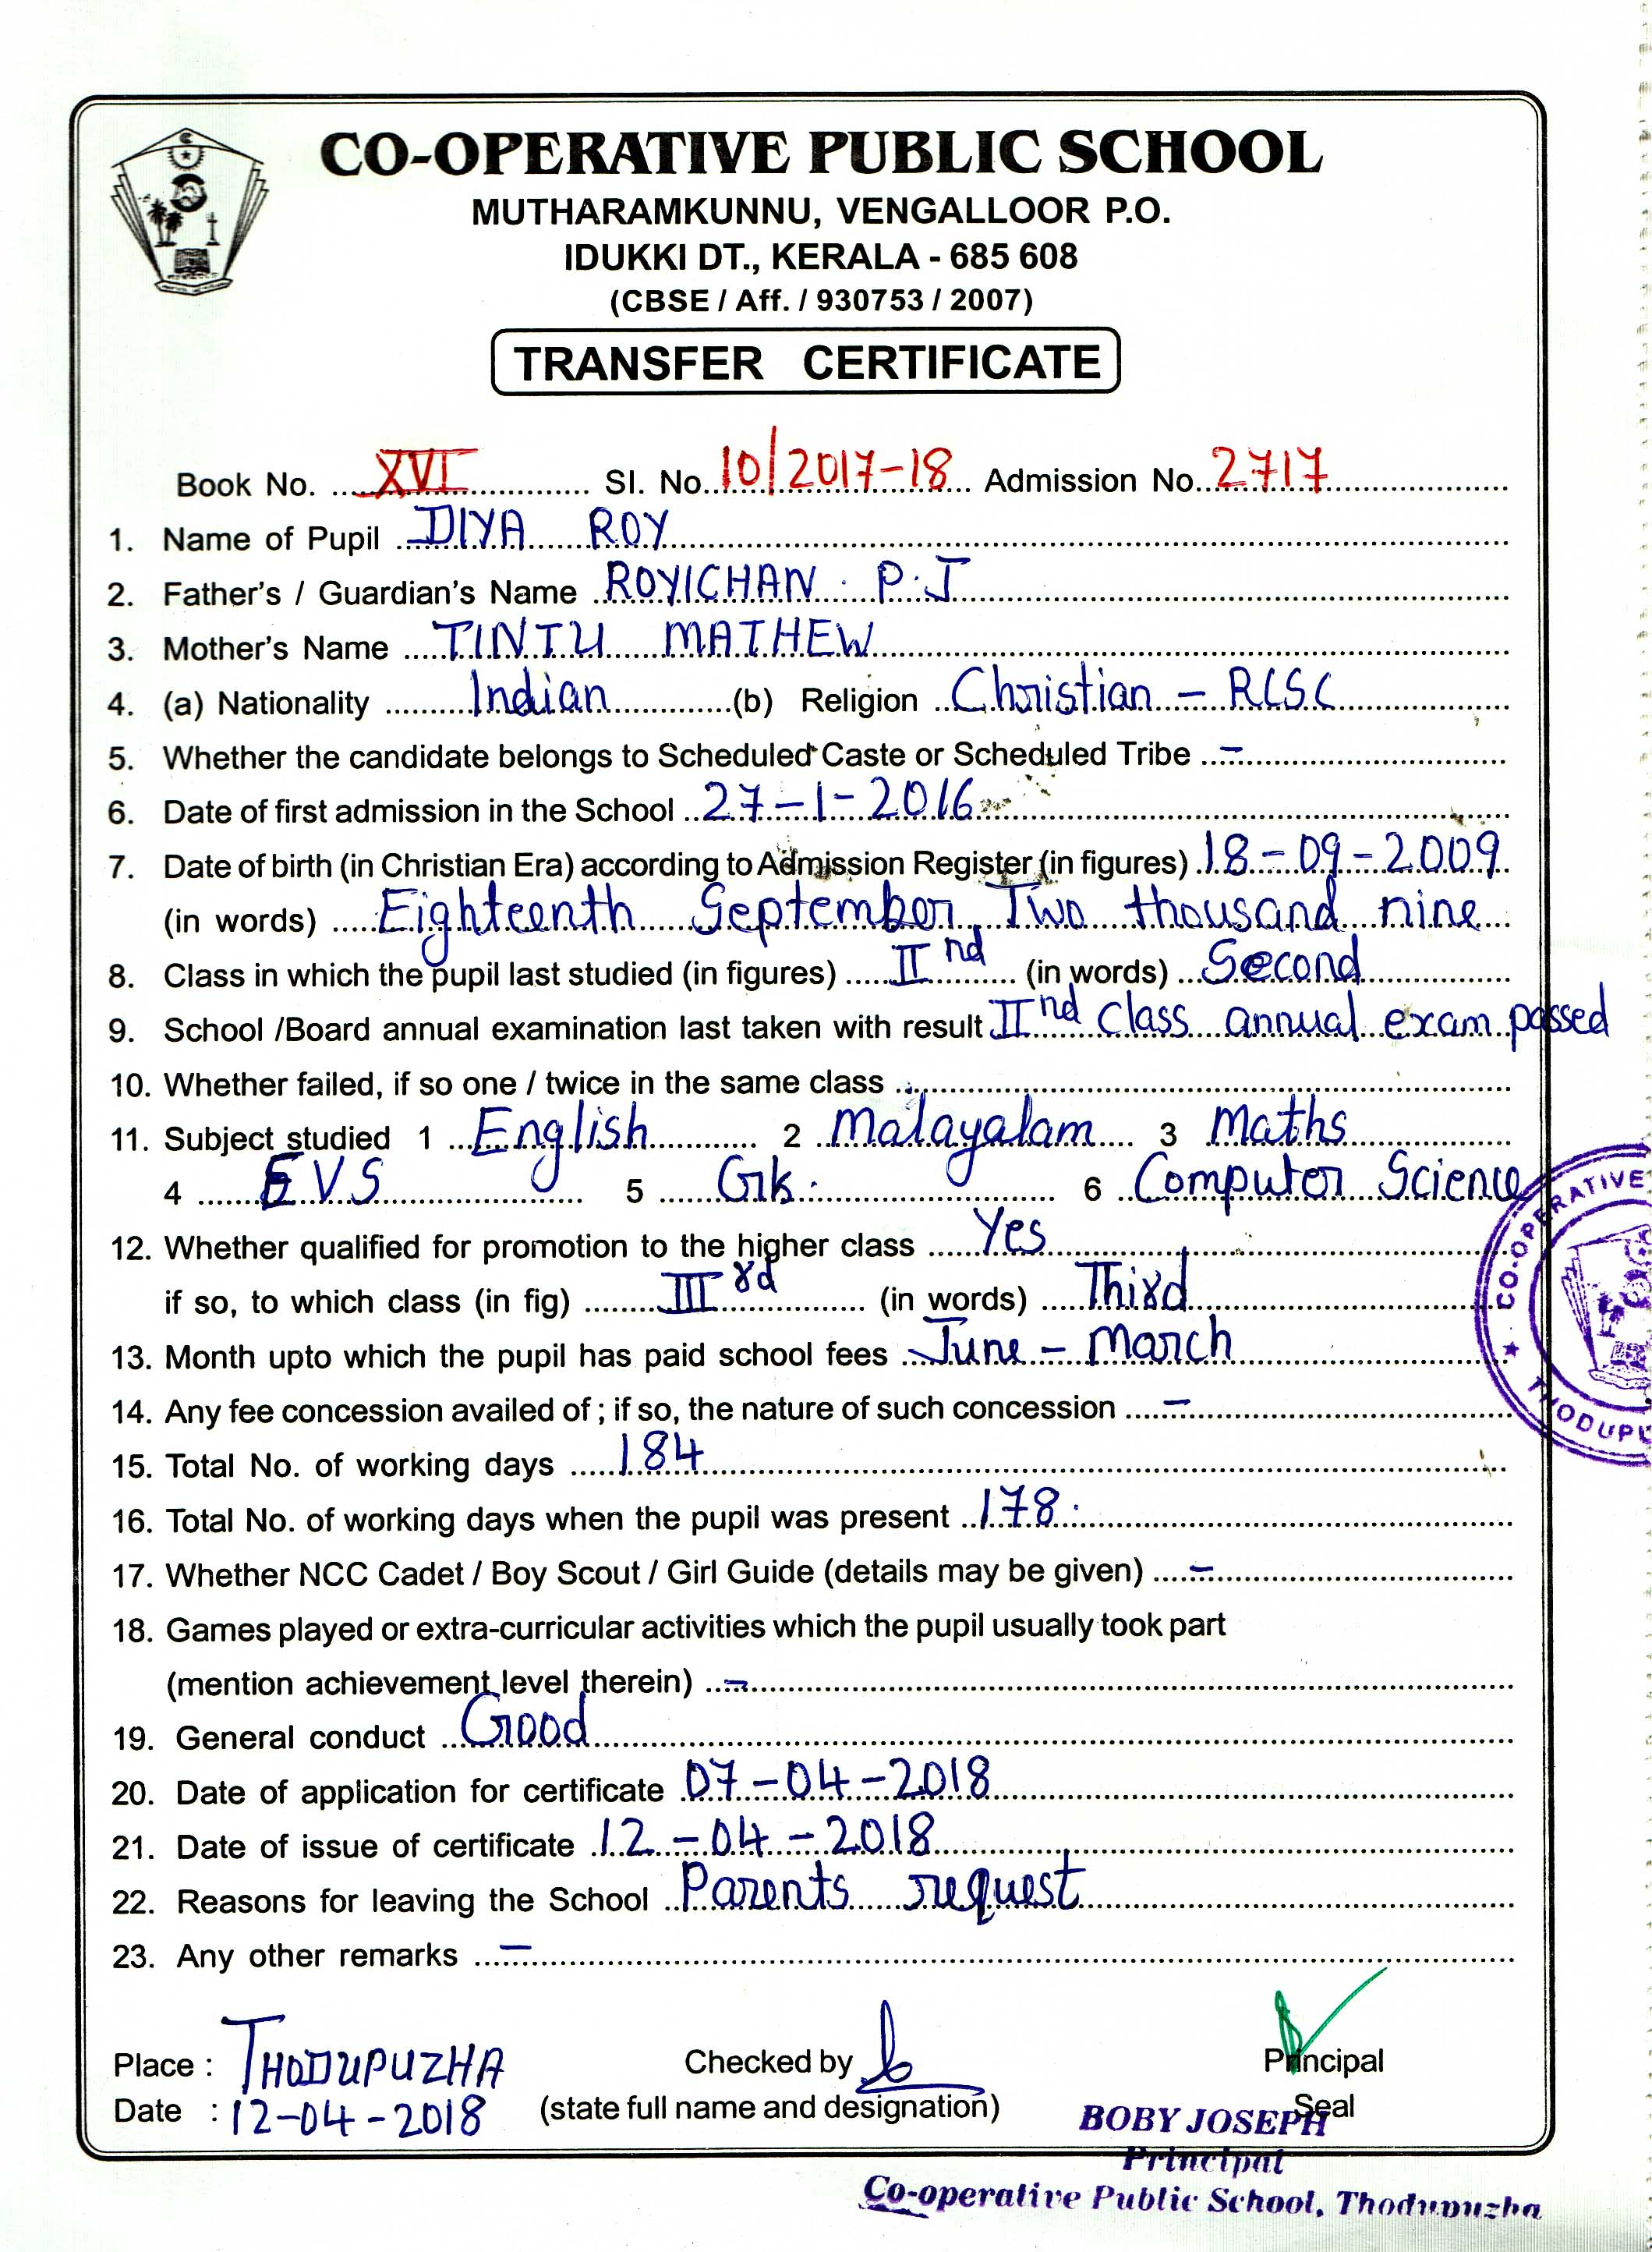 CO-OPERATIVE PUBLIC SCHOOL
MUTHARAMKUNNU, VENGALLOOR P.O.
IDUKKI DT., KERALA - 685 608
(CBSE / Aff. / 930753 / 2007)
TRANSFER CERTIFICATE
Book No. XVI Sl. No. 10/2017-18 Admission No. 2717
1. Name of Pupil DIYA ROY
2. Father's / Guardian's Name ROYICHAN . P.J
3. Mother's Name TINTU MATHEW
4. (a) Nationality Indian (b) Religion Christian - RCSC
5. Whether the candidate belongs to Scheduled Caste or Scheduled Tribe -
6. Date of first admission in the School 27-1-2016
7. Date of birth (in Christian Era) according to Admission Register (in figures) 18-09-2009
(in words) Eighteenth September Two thousand nine
8. Class in which the pupil last studied (in figures) II nd (in words) Second
9. School /Board annual examination last taken with result II nd class annual exam passed
10. Whether failed, if so one / twice in the same class
11. Subject studied 1 English 2 Malayalam 3 Maths
4 EVS 5 Gk. 6 Computer Science
12. Whether qualified for promotion to the higher class Yes
if so, to which class (in fig) III rd (in words) Third
13. Month upto which the pupil has paid school fees June - March
14. Any fee concession availed of ; if so, the nature of such concession -
15. Total No. of working days 184
16. Total No. of working days when the pupil was present 178.
17. Whether NCC Cadet / Boy Scout / Girl Guide (details may be given) -
18. Games played or extra-curricular activities which the pupil usually took part
(mention achievement level therein) -
19. General conduct Good
20. Date of application for certificate 07-04-2018
21. Date of issue of certificate 12-04-2018
22. Reasons for leaving the School Parents request
23. Any other remarks -
Place : THODUPUZHA Checked by Principal
Date : 12-04-2018 (state full name and designation) Seal
BOBY JOSEPH
Principal
Co-operative Public School, Thodupuzha
CO-OPERATIVE
THODUPU